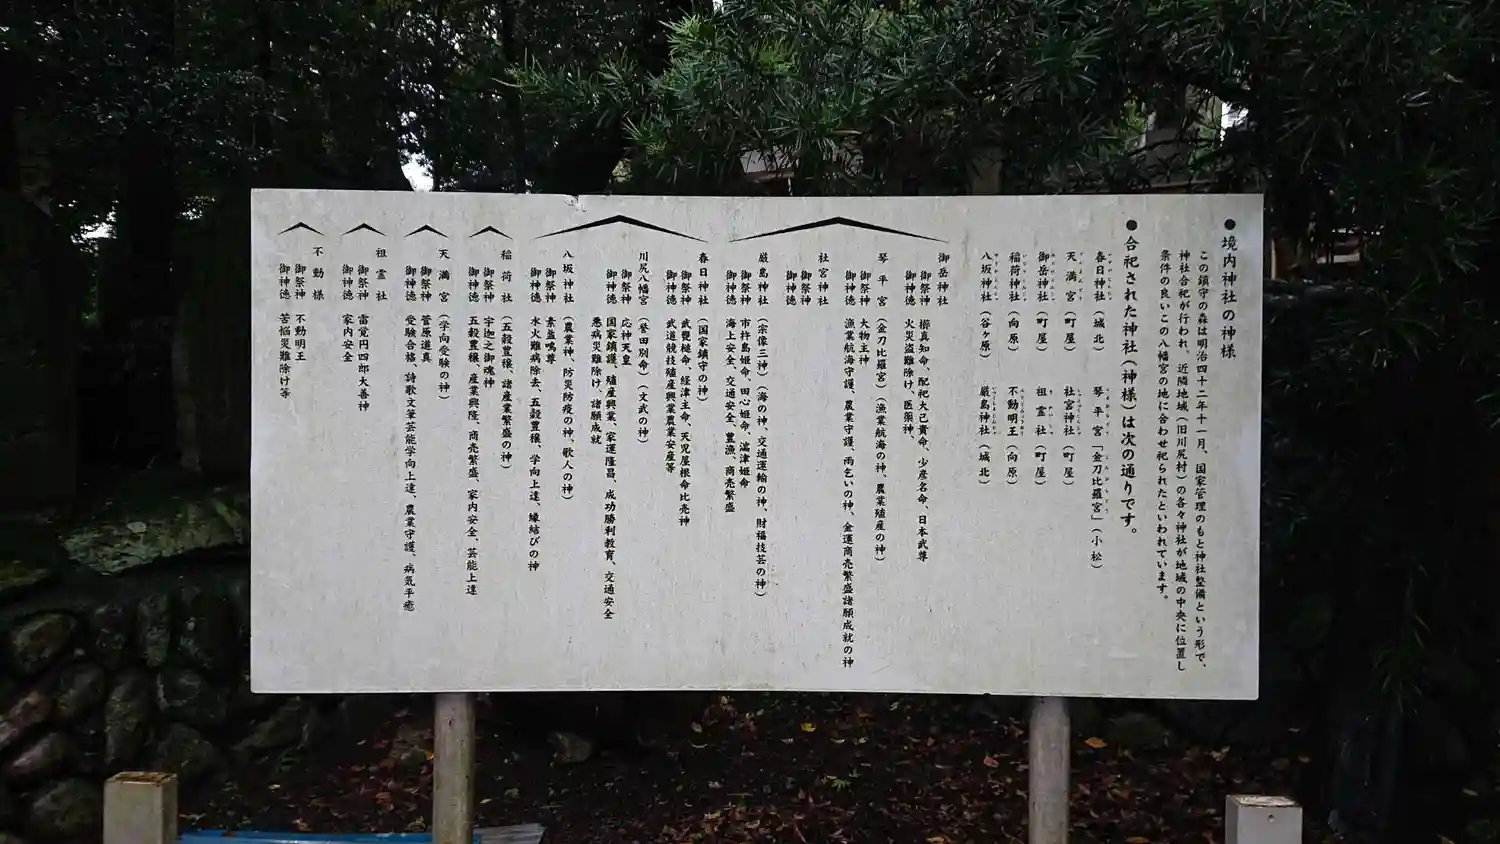 ●境内神社の神様
この鎮守の森は明治四十二年十一月、国家管理のもと神社整備という形で、
神社合祀が行われ、近隣地域（旧川尻村）の各々神社が地域の中央に位置し
条件の良いこの八幡宮の地に合わせ祀られたといわれています。
●合祀された神社（神様）は次の通りです。
春日神社（城北） 琴平宮「金刀比羅宮」（小松）
天満宮（町屋） 社宮神社（町屋）
御岳神社（町屋） 祖霊社（町屋）
稲荷神社（向原） 不動明王（向原）
八坂神社（谷ヶ原） 厳島神社（城北）
御岳神社
御祭神 櫛真知命、配祀大己貴命、少彦名命、日本武尊
御神徳 火災盗難除け、医薬神
琴平宮（金刀比羅宮）（漁業航海の神、農業殖産の神）
御祭神 大物主神
御神徳 漁業航海守護、農業守護、雨乞いの神、金運商売繁盛諸願成就の神
社宮神社
御祭神
御神徳
厳島神社（宗像三神）（海の神、交通運輸の神、財福技芸の神）
御祭神 市杵島姫命、田心姫命、湍津姫命
御神徳 海上安全、交通安全、豊漁、商売繁盛
春日神社（国家鎮守の神）
御祭神 武甕槌命、経津主命、天児屋根命比売神
御神徳 武道競技殖産興業農業安産等
川尻八幡宮（誉田別命）（文武の神）
御祭神 応神天皇
御神徳 国家鎮護、殖産興業、家運隆昌、成功勝利教育、交通安全
悪病災難除け、諸願成就
八坂神社（農業神、防災防疫の神、歌人の神）
御祭神 素盞嗚尊
御神徳 水火難病除去、五穀豊穣、学向上達、縁結びの神
稲荷社（五穀豊穣、諸産業繁盛の神）
御祭神 宇迦之御魂神
御神徳 五穀豊穣、産業興隆、商売繁盛、家内安全、芸能上達
天満宮（学向受験の神）
御祭神 菅原道真
御神徳 受験合格、詩歌文筆芸能学向上達、農業守護、病気平癒
祖霊社
御祭神 雷覚円四郎大善神
御神徳 家内安全
不動様
御祭神 不動明王
御神徳 苦悩災難除け等